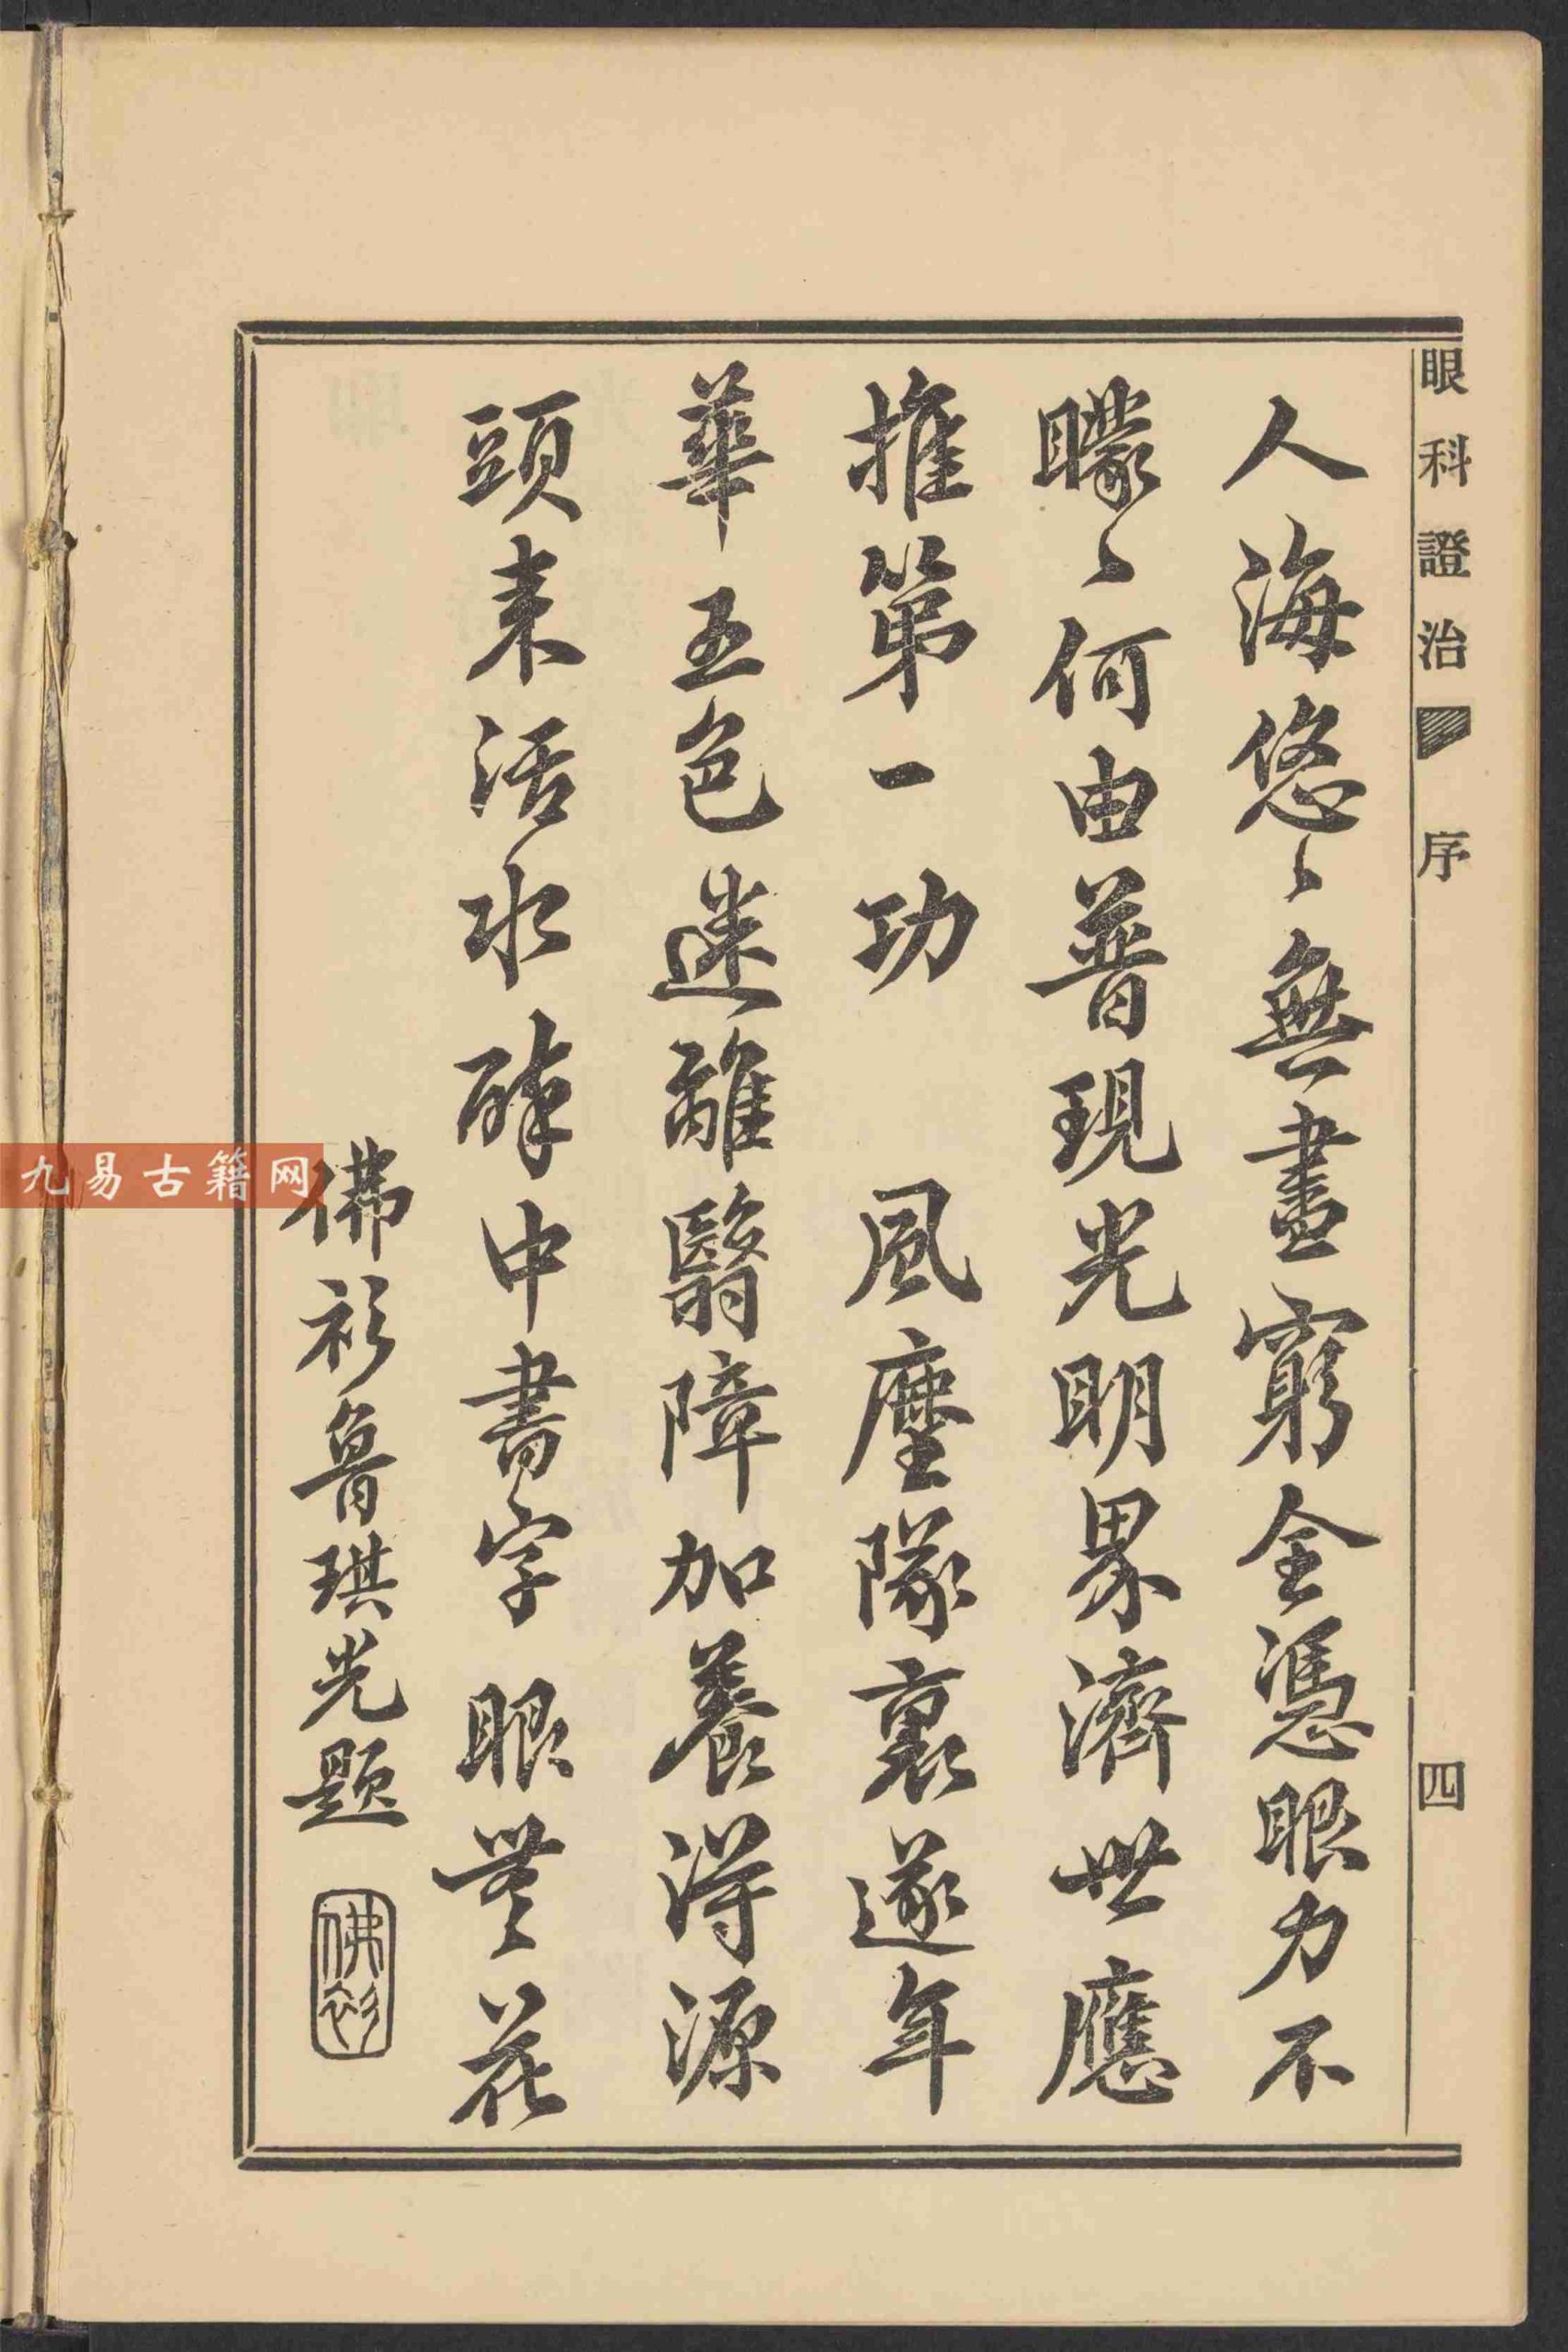 眼科證治 序 四
人海悠〻無盡窮全憑眼力不
矇〻何由普現光明界濟世應
推第一功 風塵隊裏遂年
華五色迷離翳障加養得源
頭来活水醉中書字眼無花
佛衫魯琪光題
佛衫
九易古籍网